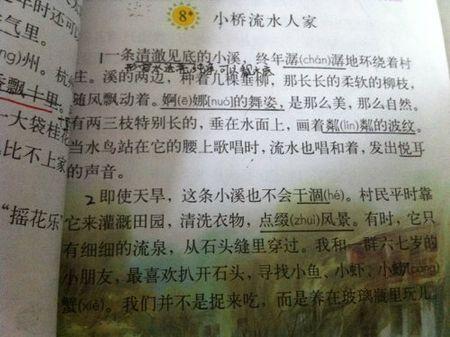 年时还可
8*
小桥流水人家
气里。
1一条清澈见底的小溪,终年潺(chán)潺地环绕着村
州。杭
庄。溪的两边,种着几棵垂柳,那长长的柔软的柳枝,
香飘十里。
随风飘动着。婀(ē)娜(nuó)的舞姿,是那么美,那么自然。
一大袋桂花
有两三枝特别长的,垂在水面上,画着粼(lín)粼的波纹。
比不上家
当水鸟站在它的腰上歌唱时,流水也唱和着,发出悦耳
的声音。
2即使天旱,这条小溪也不会干涸(hé)。村民平时靠
“摇花乐”
它来灌溉田园,清洗衣物,点缀(zhuì)风景。有时,它只
有细细的流泉,从石头缝里穿过。我和一群六七岁的
小朋友,最喜欢扒开石头,寻找小鱼、小虾、小螃(páng)
蟹(xiè)。我们并不是捉来吃,而是养在玻璃瓶里玩儿。